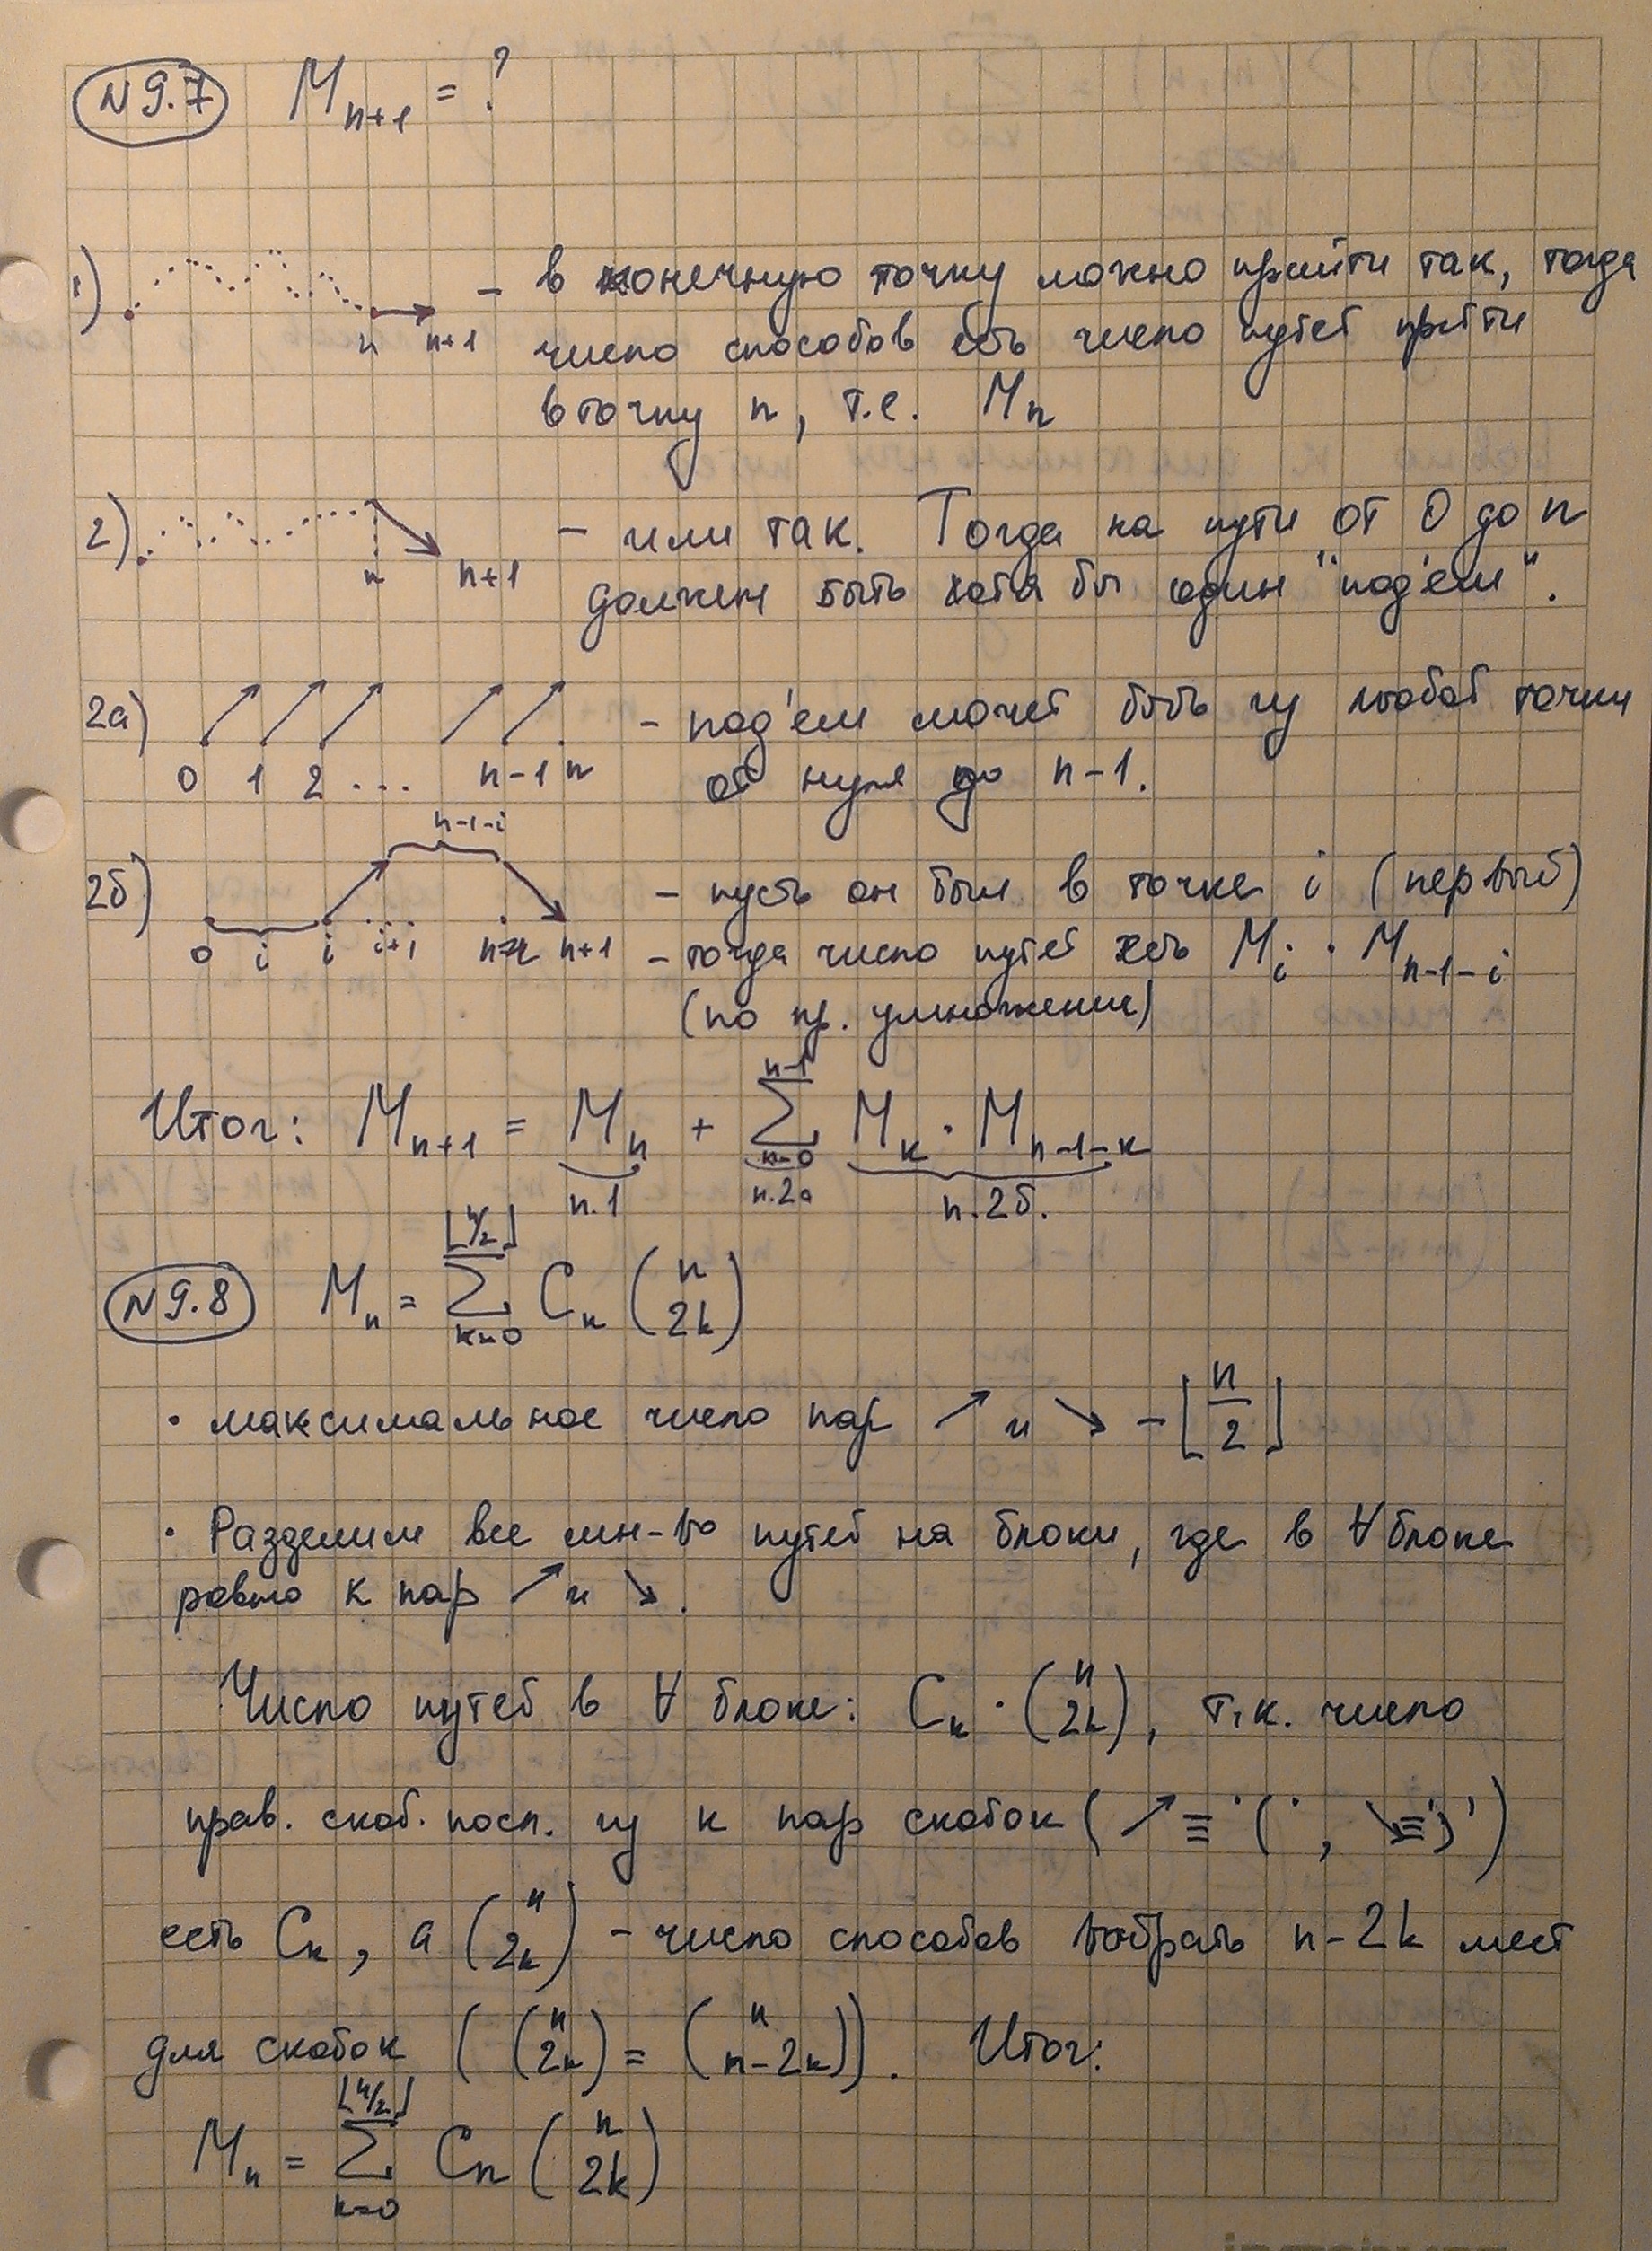 N 9.7 M_{n+1} = ?
1) n n+1 – в конечную точку можно прийти так, тогда
число способов есть число путей прийти
в точку n, т.е. M_n
2) n n+1 – или так. Тогда на пути от 0 до n
должен быть хотя бы один "под'ём".
2а) 0 1 2 ... n-1 n – под'ем может быть из любой точки
от нуля до n-1.
n-1-i
2б) – пусть он был в точке i (первый)
0 i i i+1 n n+1 – тогда число путей есть M_i · M_{n-1-i}
(по пр. умножения)
Итог: M_{n+1} = M_n + \sum_{k=0}^{n-1} M_k · M_{n-1-k}
п.1 п.2а п.2б.
N 9.8 M_n = \sum_{k=0}^{⌊n/2⌋} C_k \binom{n}{2k}
· максимальное число пар ↗ и ↘ – ⌊n/2⌋
· Разделим все мн-во путей на блоки, где в ∀ блоке
ровно k пар ↗ и ↘.
Число путей в ∀ блоке: C_k · \binom{n}{2k}, т.к. число
прав. скоб. посл. из k пар скобок (↗ ≡ '(', ↘ ≡ ')')
есть C_k, а \binom{n}{2k} – число способов выбрать n-2k мест
для скобок (\binom{n}{2k} = \binom{n}{n-2k}). Итог:
M_n = \sum_{k=0}^{⌊n/2⌋} C_n \binom{n}{2k}